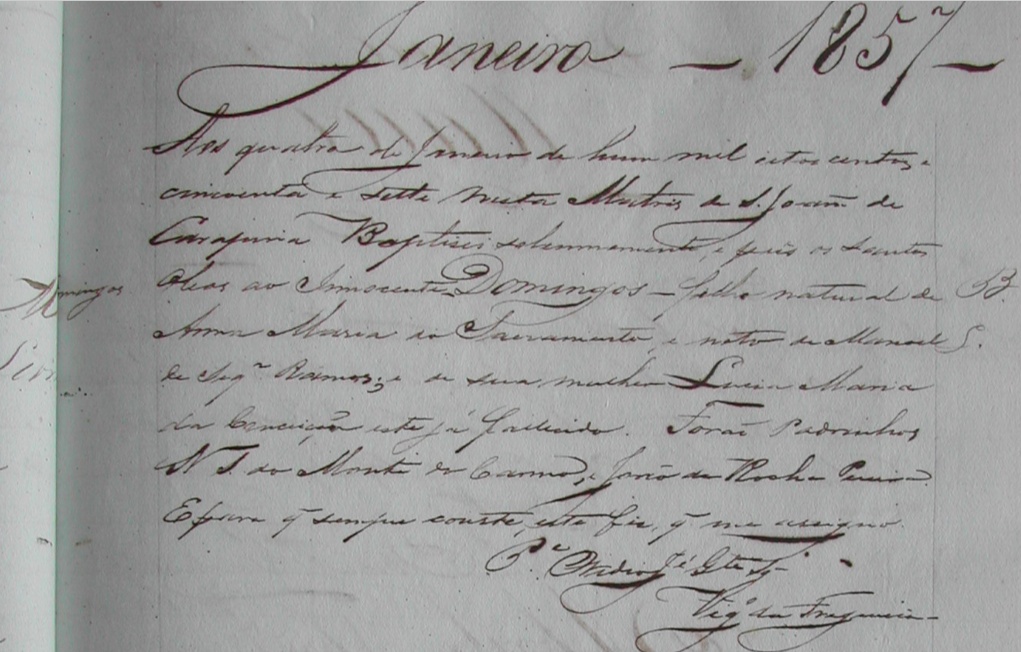 Janeiro — 1857 —
Aos quatro de Janeiro de hum mil oitocentos, e
cincoenta e sette nesta Matris de S. Joam de
Baptisei solemnemente, e pus os Santos
Domingos
Oleos ao Innocente — Domingos — filho natural de B.
Anna Maria do Sacramento, e neto de Manoel S.
de Seqrª Ramos; e de sua mulher Lucia Maria
da Conceição este já fallecido. Forão Padrinhos
N. S. do Monte do Carmo, e João da Rocha Pereira
E para q sempre conste, este fis, q me assigno.
Pe Pedro Jé
Vigº da Freguesia